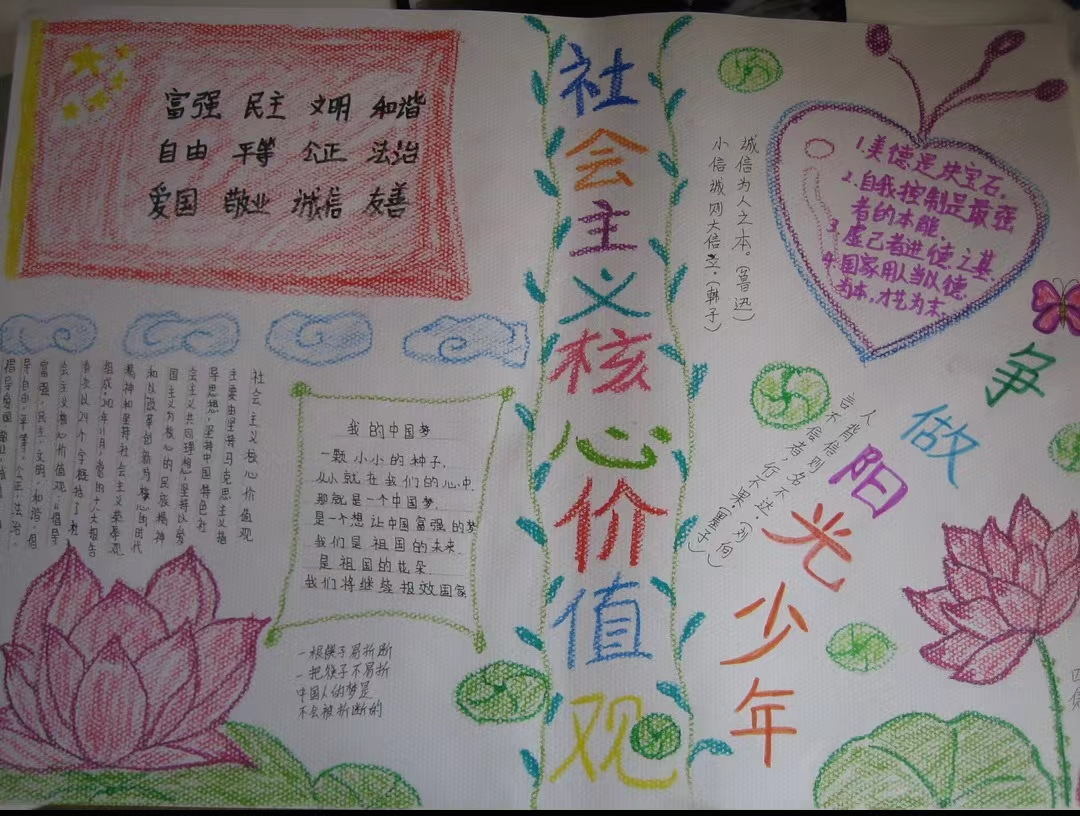 富强 民主 文明 和谐
自由 平等 公正 法治
爱国 敬业 诚信 友善
社会主义核心价值观
主要由坚持马克思主义指
导思想,坚持中国特色社
会主义共同理想,坚持以爱
国主义为核心的民族精神
和以改革创新为核心的时代
精神和坚持社会主义荣辱观
组成.
11月,党的十八大报告
首次以24个字概括了社
会主义核心价值观,倡导
富强、民主、文明、和谐,倡
导自由、平等、公正、法治,
倡导爱国
我的中国梦
一颗小小的种子,
从小就在我们的心中.
那就是一个中国梦,
是一个想让中国富强的梦
我们是祖国的未来.
是祖国的花朵
我们将继续报效国家
一根筷子易折断
一把筷子不易折
中国人的梦是
不会被折断的
社会主义核心价值观
诚信为人之本。(鲁迅)
小信诚则大信立.(韩子)
1.美德是块宝石。
2.自我控制是最强
者的本能.
3.虚己者进德之基
4.国家用人当以德
为本,才艺为末.
人背信则名不达.(刘向)
言不信者,行不果.(墨子)
争做阳光少年